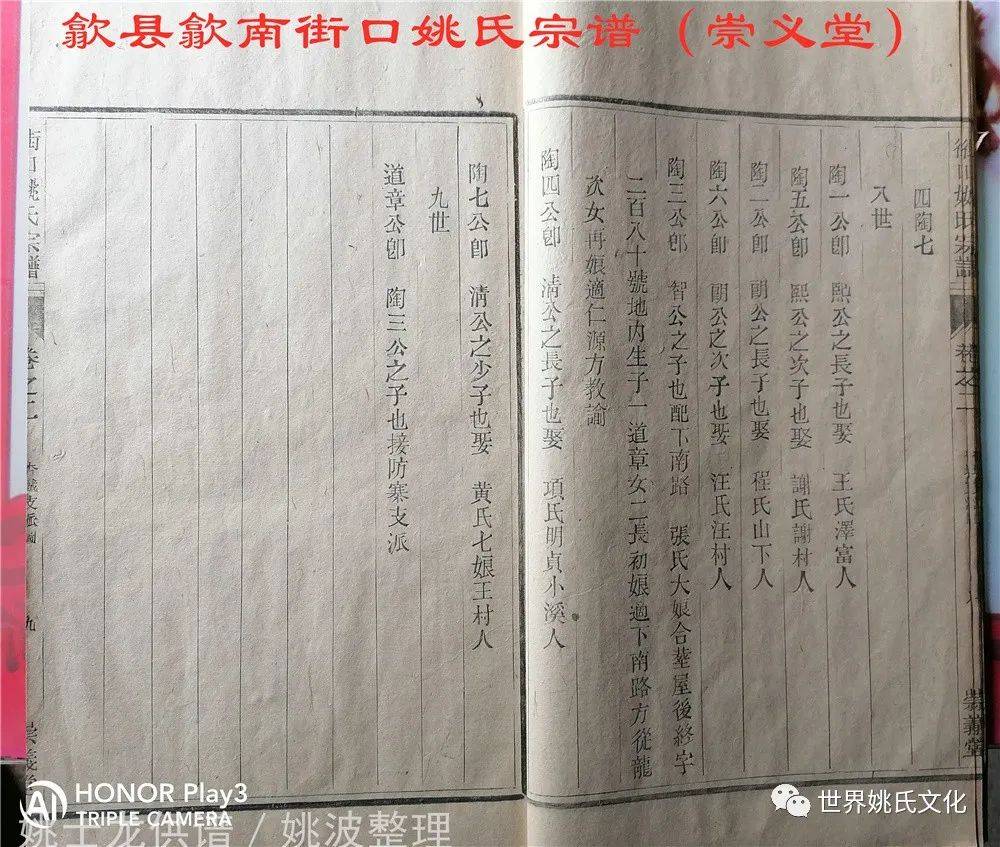 歙县歙南街口姚氏宗谱（崇义堂）
街口姚氏宗譜
卷之二
崇義堂
四陶七
八世
陶一公郎 熙公之長子也娶 王氏澤富人
陶五公郎 熙公之次子也娶 謝氏謝村人
陶二公郎 朗公之長子也娶 程氏山下人
陶六公郎 朗公之次子也娶 汪氏汪村人
陶三公郎 智公之子也配下南路 張氏大娘合塟屋後終字
二百八十號地内生子一道章女二長初娘適下南路方從龍
次女再娘適仁源方教諭
陶四公郎 清公之長子也娶 項氏明貞小溪人
陶七公郎 清公之少子也娶 黄氏七娘王村人
九世
道章公郎 陶三公之子也接防寨支派
街口姚氏宗譜
卷之二
九
崇義堂
HONOR Play3
TRIPLE CAMERA
AI
世界姚氏文化
姚士龙供谱 / 姚波整理